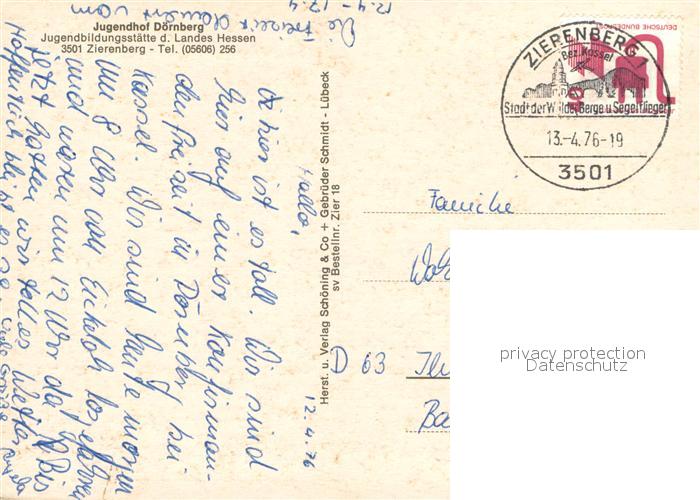 Jugendhof Dörnberg
Jugendbildungsstätte d. Landes Hessen
3501 Zierenberg - Tel. (05606) 256
Die Freizeit dauert vom
12.4 - 17.4
Herst. u. Verlag Schöning & Co + Gebrüder Schmidt - Lübeck
sv Bestellnr. Zier 18
12.4.76
Hallo,
hier ist es toll. Wir sind
hier auf einer Konfirman-
denfreizeit in Dörnberg bei
Kassel. Wir sind heute morgen
um 8 Uhr von losgefahren
und waren um 12 Uhr da. Bis
jetzt hatten wir tolles Wetter
Hoffentlich bleibt es so. Viele Grüße
DEUTSCHE BUNDESPOST
ZIERENBERG
Bez. Kassel
Stadt der Wälder, Berge u. Segelflieger
13.-4.76-19
3501
Familie
D 63
Ba
privacy protection
Datenschutz